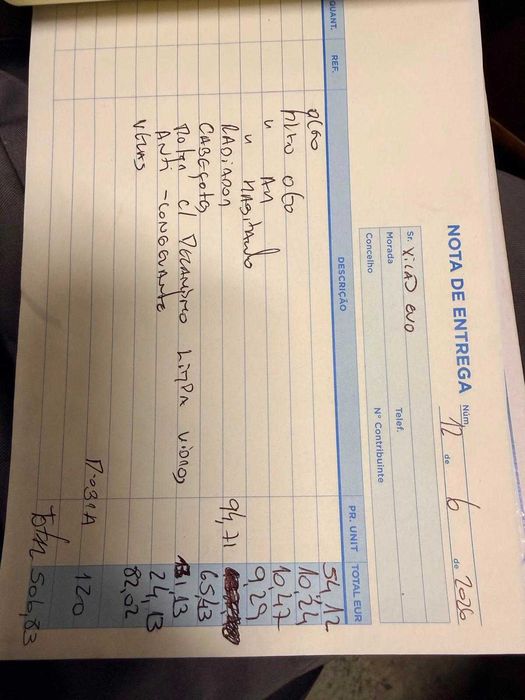 NOTA DE ENTREGA Núm.
12 de 6 de 2026
Sr.
Morada Telef.
Concelho Nº Contribuinte
QUANT. REF. DESCRIÇÃO PR. UNIT TOTAL EUR
oleo 54,12
filtro oleo 10,24
" AR 10,47
" Habitaculo 9,29
RADIADOR 94,71
CABEÇOTE 65,43
c/ Limpa vidros 13,13
ANTI-CONGELANTE 24,13
VELAS 82,02
M-OBRA 120
Total 506,83